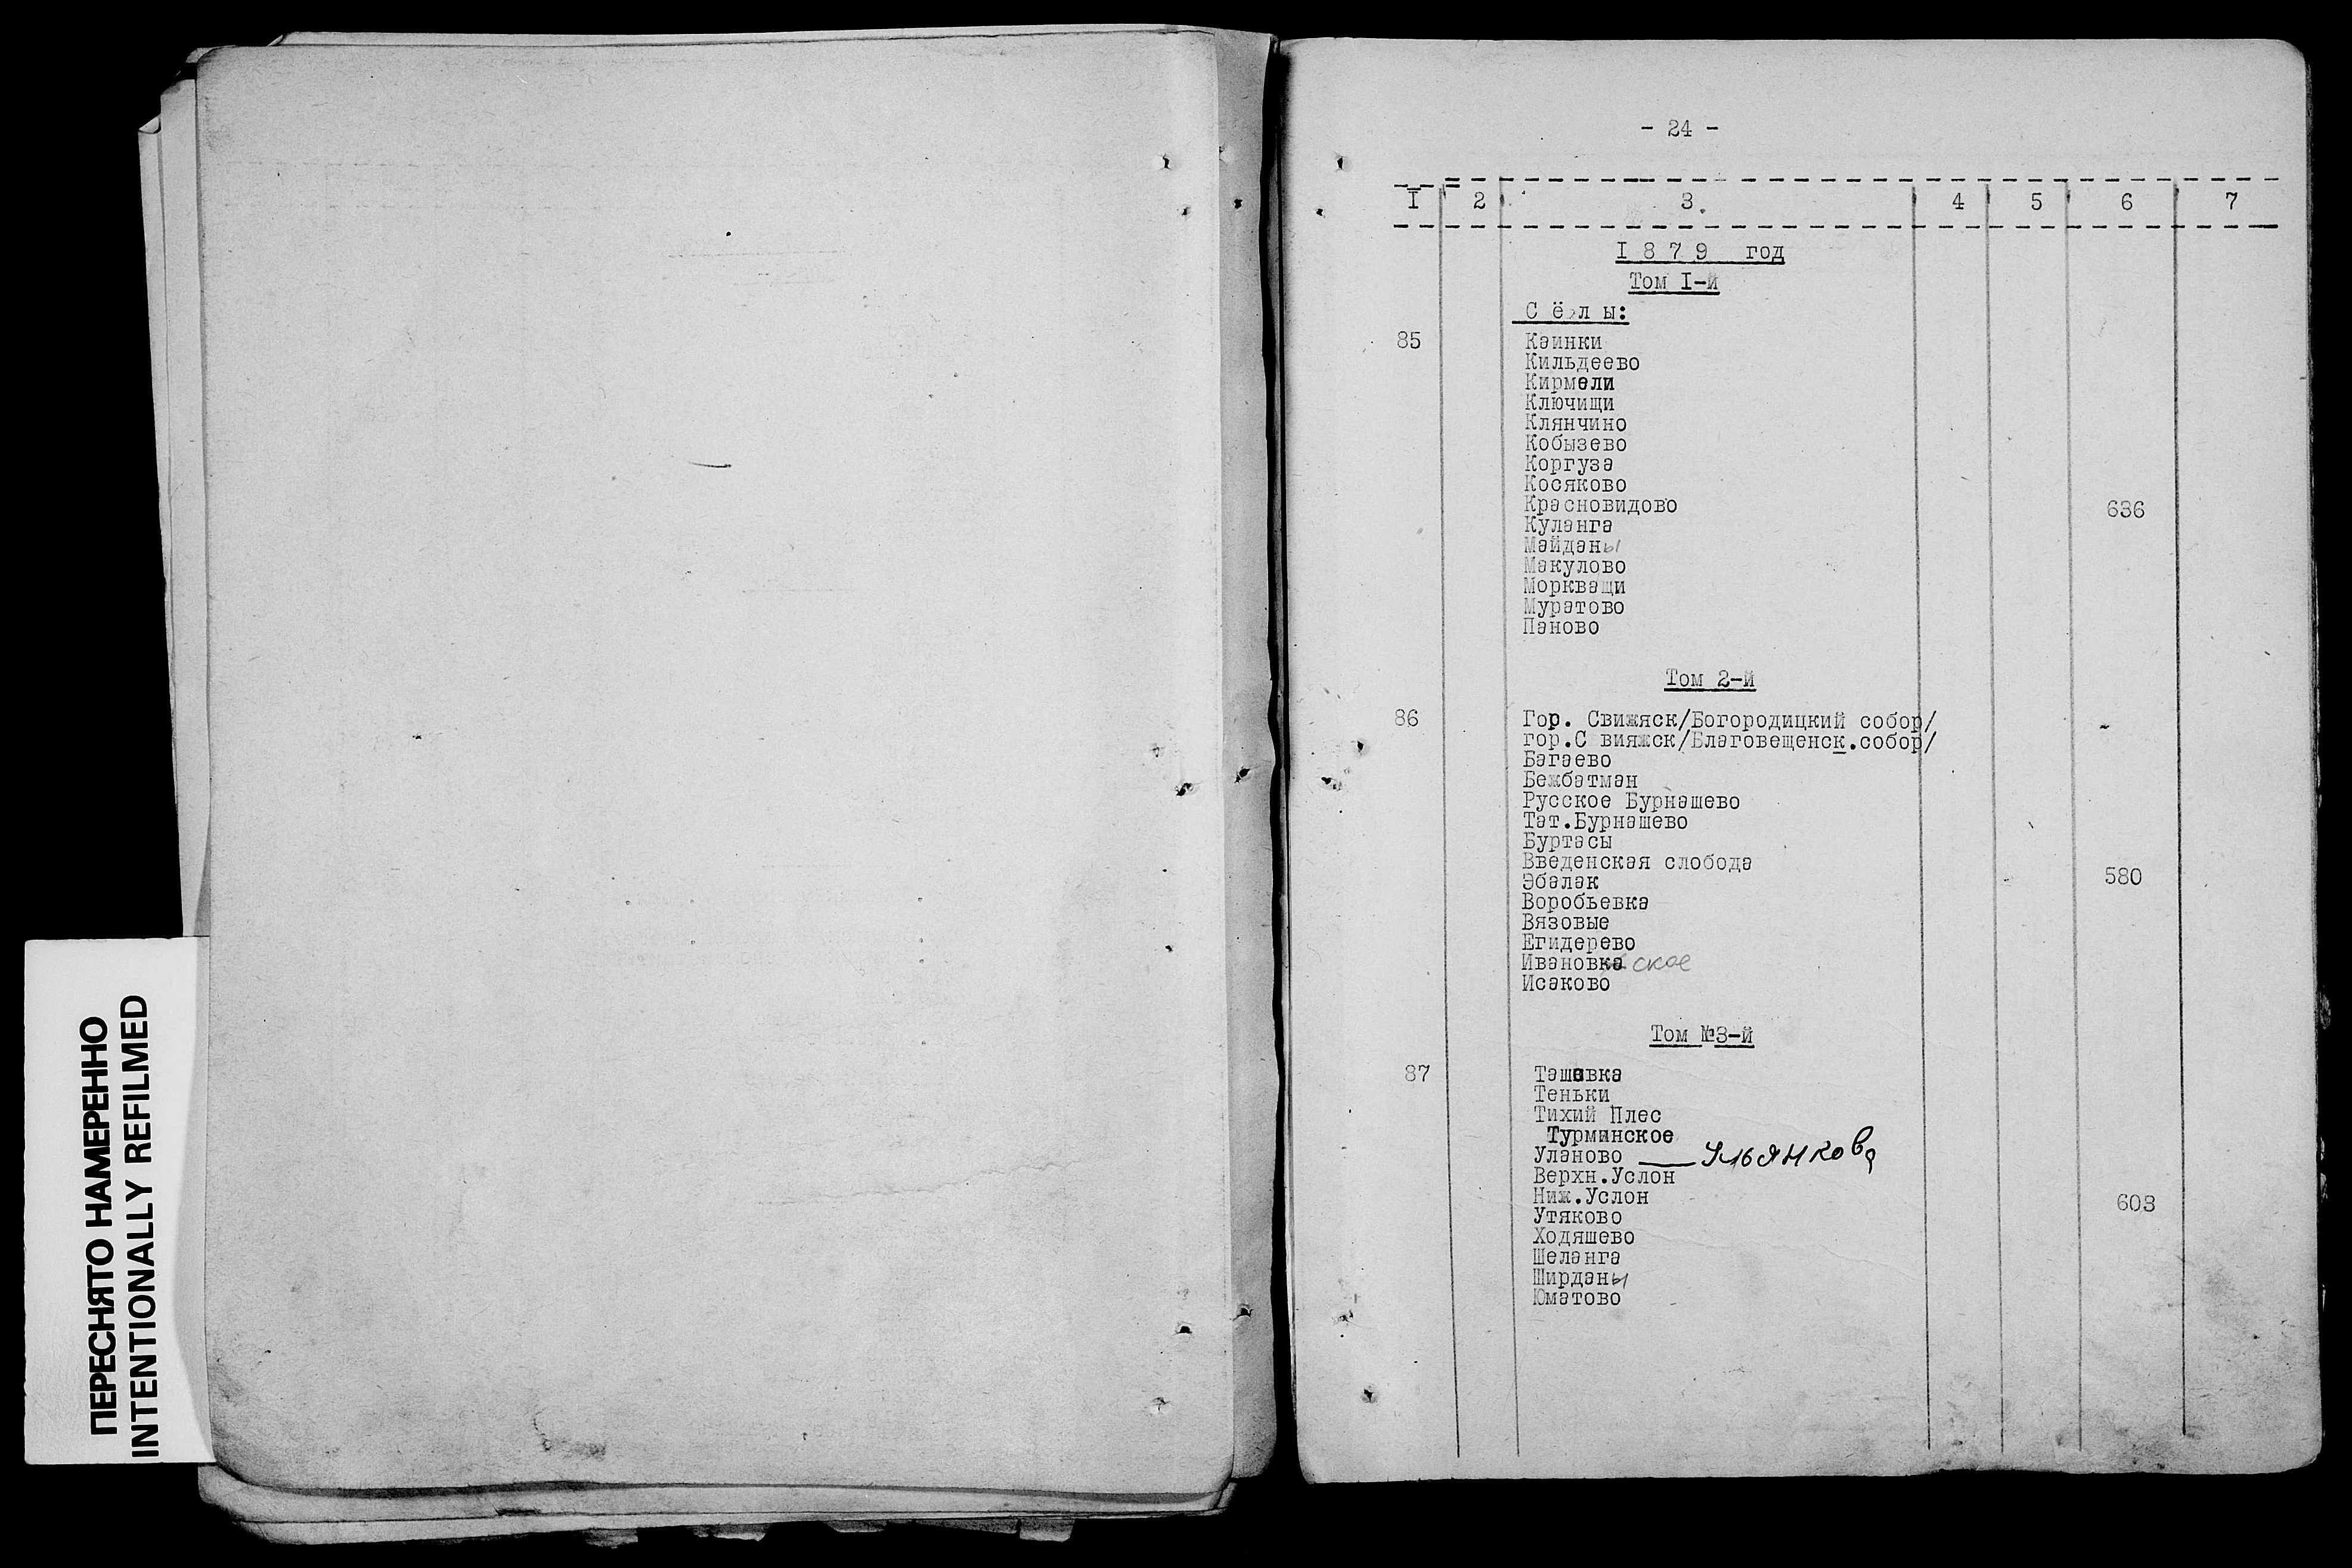 ПЕРЕСНЯТО НАМЕРЕННО
INTENTIONALLY REFILMED
- 24 -
I 2 3. 4 5 6 7
I 8 7 9 год
Том I-й
С ё л ы:
85 Каинки
Кильдеево
Кирмели
Ключищи
Клянчино
Кобызево
Коргуза
Косяково
Красновидово 636
Куланга
Майданы
Макулово
Моркващи
Муратово
Паново
Том 2-й
86 Гор. Свижяск/Богородицкий собор/
гор.С вияжск/Благовещенск.собор/
Багаево
Бежбатман
Русское Бурнашево
Тат.Бурнашево
Буртасы
Введенская слобода
Эбалак 580
Воробьевка
Вязовые
Егидерево
Ивановка ское
Исаково
Том №3-й
87 Ташевка
Теньки
Тихий Плес
Турминское
Уланово — Ульянкова
Верхн.Услон
Ниж.Услон 603
Утяково
Ходяшево
Шеланга
Ширданы
Юматово